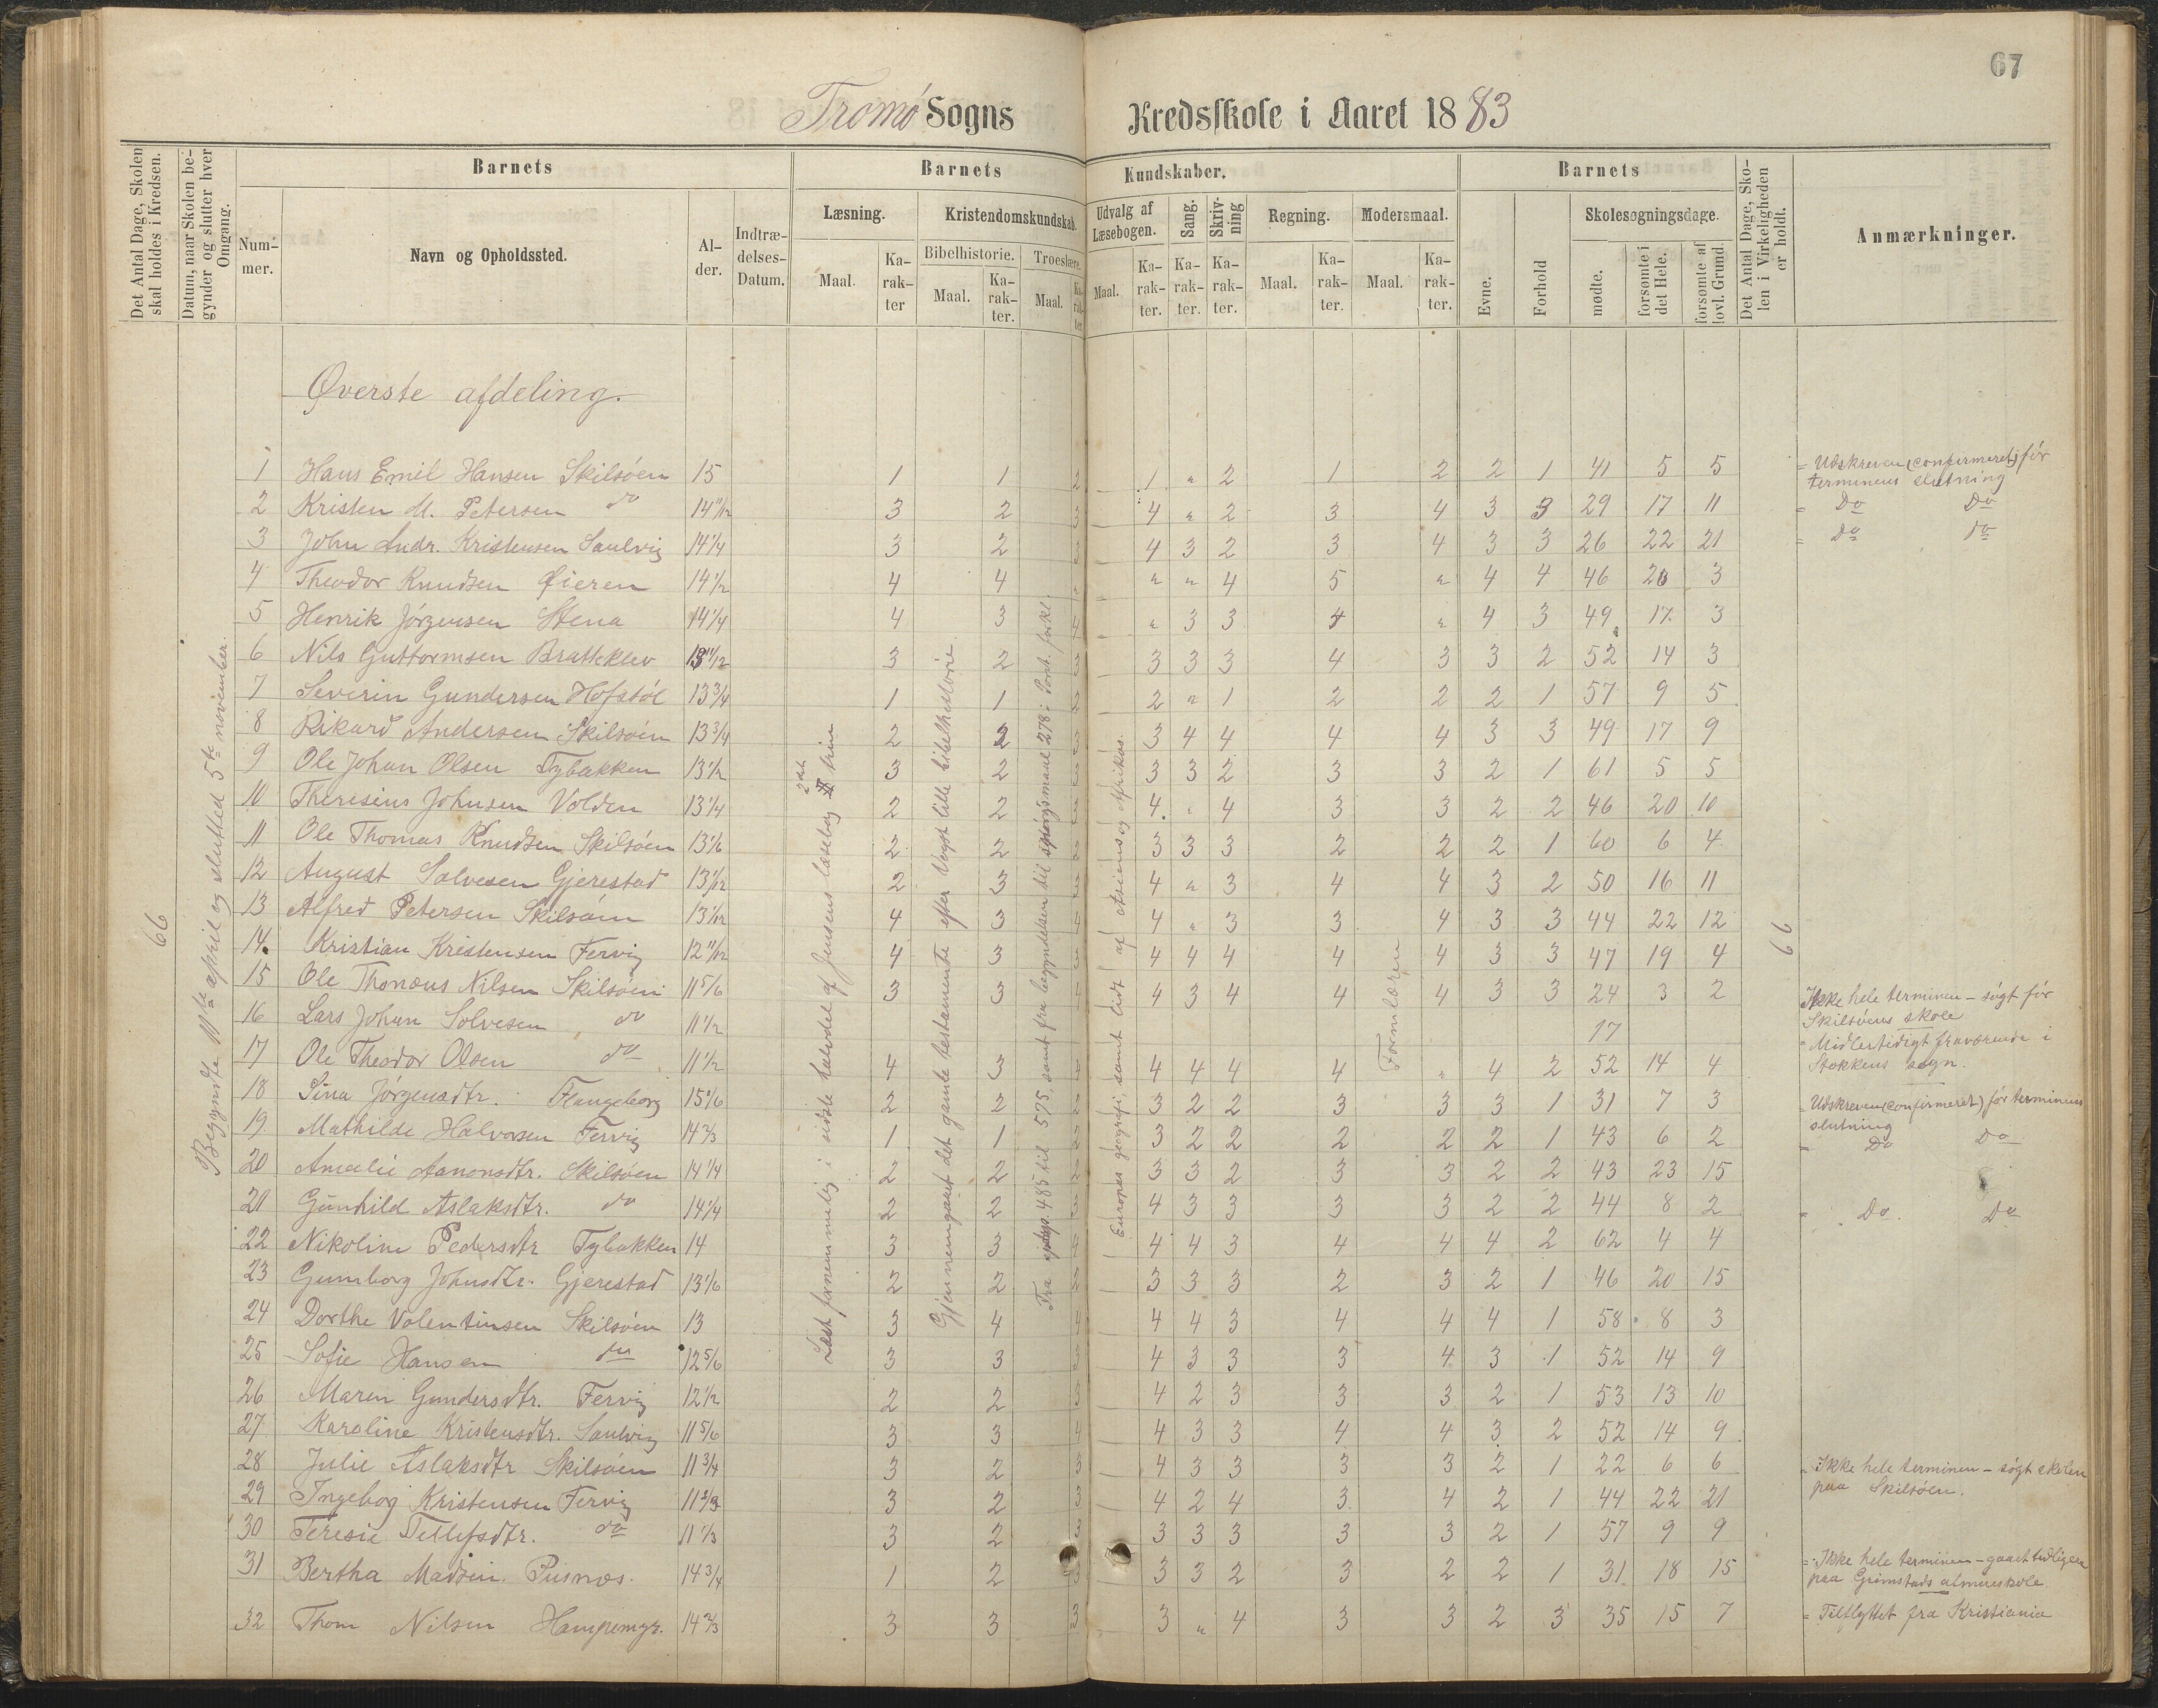 67
Tromø Sogns Kredsskole i Aaret 1883
Det Antal Dage, Skolen skal holdes i Kredsen.
Datum, naar Skolen begynder og slutter hver Omgang.
Barnets
Num-mer.
Navn og Opholdssted.
Al-der.
Indtræ-delses-Datum.
Barnets Kundskaber.
Læsning.
Maal.
Ka-rak-ter
Kristendomskundskab.
Bibelhistorie.
Maal.
Ka-rak-ter.
Troeslære.
Maal.
Ka-rak-ter.
Udvalg af Læsebogen.
Maal.
Ka-rak-ter.
Sang.
Ka-rak-ter.
Skriv-ning
Ka-rak-ter.
Regning.
Maal.
Ka-rak-ter.
Modersmaal.
Maal.
Ka-rak-ter.
Barnets
Evne.
Forhold
Skolesøgningsdage.
mødte.
forsømte i det Hele.
forsømte af lovl. Grund.
Det Antal Dage, Sko-len i Virkeligheden er holdt.
Anmærkninger.
Øverste afdeling.
66
Begyndte 11te april og slutted 5te november.
Læst fornemmelig i sidste halvdel af Jensens læsebog 2det trin
Gjennemgaaet det gamle testamente efter Vogt lille bibelhistorie
Fra 485 til 575, samt fra begyndelsen til spørgsmaal 278 i Pont. forkl.
Europas geografi, samt lidt af Asiens og Afrikas.
Formlæren
66
1 Hans Emil Hansen Skilsøen 15 1 1 2 1 " 2 1 2 2 1 41 5 5 = Udskreven (confirmeret) før terminens slutning
2 Kristen M. Petersen do 14 11/12 3 2 3 4 " 2 3 4 3 3 29 17 11 = Do Do
3 John Andr. Kristensen Saulvig 14 1/4 3 2 3 4 3 2 3 4 3 3 26 22 21 = Do Do
4 Theodor Knudsen Øieren 14 1/2 4 4 " " 4 5 " 4 4 46 20 3
5 Henrik Jørgensen Stena 14 1/4 4 3 4 " 3 3 4 " 4 3 49 17 3
6 Nils Guttormsen Bratteklev 13 11/12 3 2 3 3 3 3 4 3 3 2 52 14 3
7 Severin Gundersen Hofstøl 13 3/4 1 1 2 2 " 1 2 2 2 1 57 9 5
8 Rikard Andersen Skilsøen 13 3/4 2 2 3 3 4 4 4 4 3 3 49 17 9
9 Ole Johan Olsen Tybakken 13 1/2 3 2 3 3 3 2 3 3 2 1 61 5 5
10 Theresius Johnsen Volden 13 1/4 2 2 3 4 " 4 3 3 2 2 46 20 10
11 Ole Thomas Knudsen Skilsøen 13 1/6 2 2 2 3 3 3 2 2 2 1 60 6 4
12 August Salvesen Gjerestad 13 1/12 2 3 3 4 " 3 4 4 3 2 50 16 11
13 Alfred Petersen Skilsøen 13 1/12 4 3 4 4 " 3 3 4 3 3 44 22 12
14 Kristian Kristensen Fervig 12 11/12 4 3 3 4 4 4 4 4 3 3 47 19 4
15 Ole Thomæus Nilsen Skilsøen 11 5/6 3 3 4 4 3 4 4 4 3 3 24 3 2 Ikke hele terminen – søgt før Skilsøens skole
16 Lars Johan Solvesen do 11 1/2 17 = Midlertidigt fraværende i Stokkens sogn.
17 Ole Theodor Olsen do 11 1/2 4 3 4 4 4 4 4 " 4 2 52 14 4
18 Sina Jørgensdtr. Flangeborg 15 1/6 2 2 2 3 2 2 3 3 3 1 31 7 3 = Udskreven (confirmeret) før terminens slutning
19 Mathilde Halvorsen Fervig 14 2/3 1 1 2 3 2 2 2 2 2 1 43 6 2 = Do Do
20 Amalie Aanonsdtr. Skilsøen 14 1/4 2 2 2 3 3 2 3 3 2 2 43 23 15
21 Gunhild Aslaksdtr. do 14 1/4 2 2 3 4 3 3 3 3 2 2 44 8 2 = Do. Do
22 Nikoline Pedersdtr Tybakken 14 3 3 4 4 4 3 4 4 4 2 62 4 4
23 Gunnborg Johnsdtr. Gjerestad 13 1/6 2 2 2 3 3 3 2 3 2 1 46 20 15
24 Dorthe Valentinsen Skilsøen 13 3 4 4 4 4 3 4 4 4 1 58 8 3
25 Sofie Hansen do 12 5/6 3 3 3 4 3 3 3 4 3 1 52 14 9
26 Maren Gundersdtr. Fervig 12 1/2 2 2 3 4 2 3 3 3 2 1 53 13 10
27 Karoline Kristensdtr. Saulvig 11 5/6 3 3 4 4 3 3 4 4 3 2 52 14 9
28 Julie Aslaksdtr Skilsøen 11 3/4 3 2 3 4 3 3 3 3 2 1 22 6 6 = Ikke hele terminen – søgt skolen paa Skilsøen.
29 Ingebog Kristensen Fervig 11 2/3 3 2 3 4 2 4 3 4 2 1 44 22 21
30 Teresie Tellefsdtr. do 11 2/3 3 2 3 3 3 3 3 3 2 1 57 9 9
31 Bertha Madsen Pusnæs. 14 3/4 1 2 3 3 3 2 3 2 2 1 31 18 15 = Ikke hele terminen – gaaet tidligere paa Grimstads almueskole
32 Thom Nilsen Hampemyr. 14 2/3 3 3 3 3 " 4 3 3 2 3 35 15 7 = Tilflyttet fra Kristiania